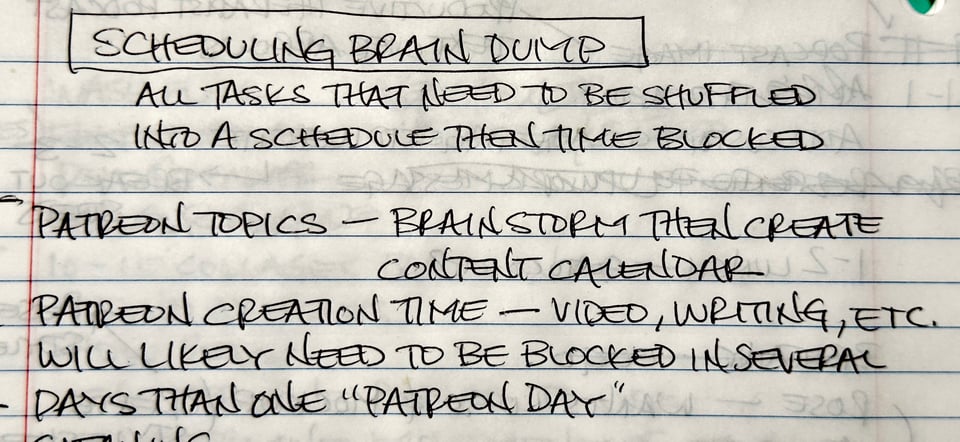 SCHEDULING BRAIN DUMP
ALL TASKS THAT NEED TO BE SHUFFLED
INTO A SCHEDULE THEN TIME BLOCKED
- PATREON TOPICS — BRAINSTORM THEN CREATE
CONTENT CALENDAR
- PATREON CREATION TIME — VIDEO, WRITING, ETC.
WILL LIKELY NEED TO BE BLOCKED IN SEVERAL
- DAYS THAN ONE "PATREON DAY"